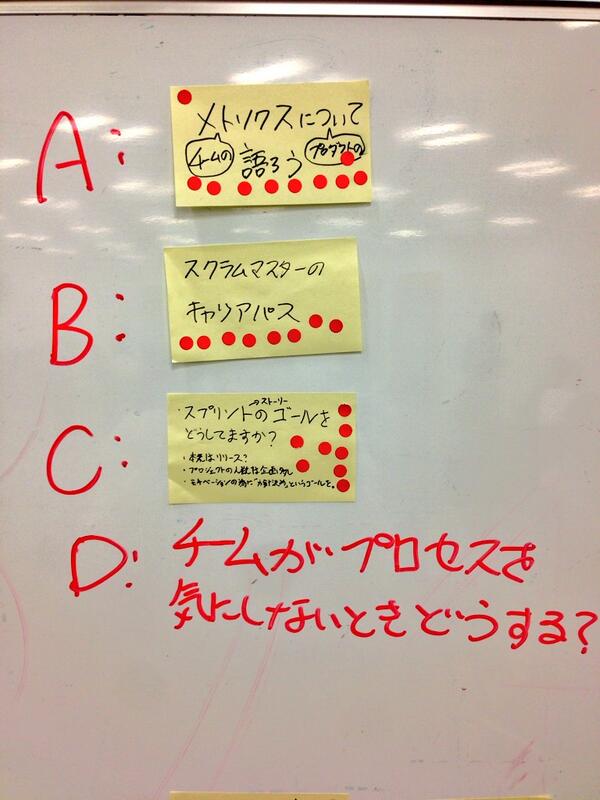 A:
メトリクスについて
チームの
プロダクトの
語ろう
B:
スクラムマスターの
キャリアパス
C:
→ストーリー
・スプリントのゴールを
どうしてますか?
・本来はリリース?
・プロジェクトの人数は企画
・モチベーションの為に というゴールを。
D:
チームがプロセスを
気にしないときどうする?